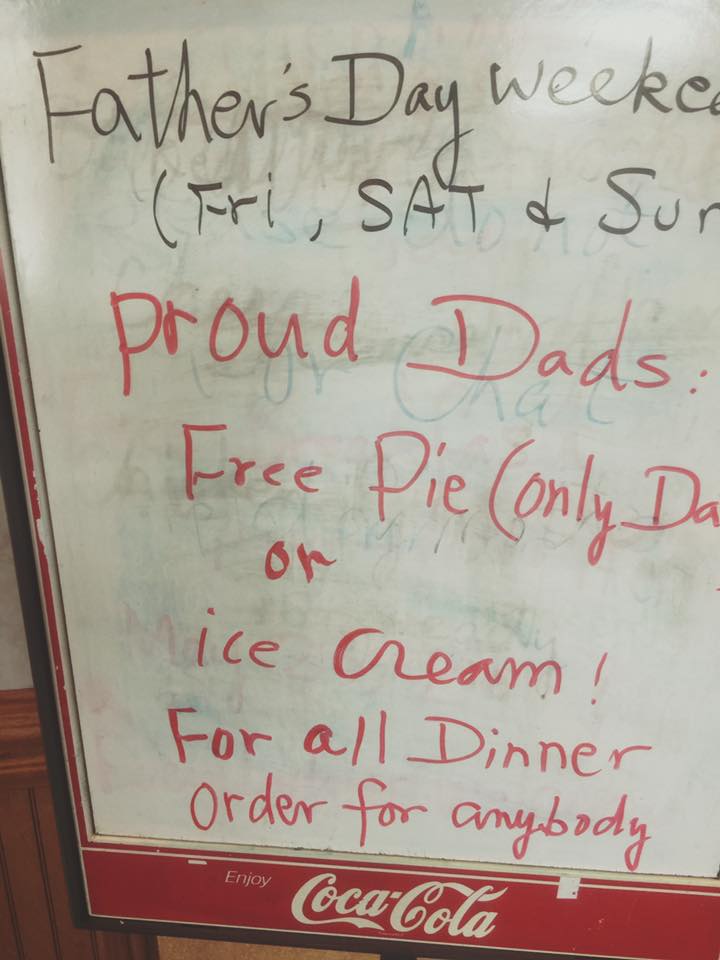 Father's Day weeke
(Fri, SAT & Sun
Proud Dads:
Free Pie (only Da
or
ice cream!
For all Dinner
order for anybody
Enjoy
Coca-Cola